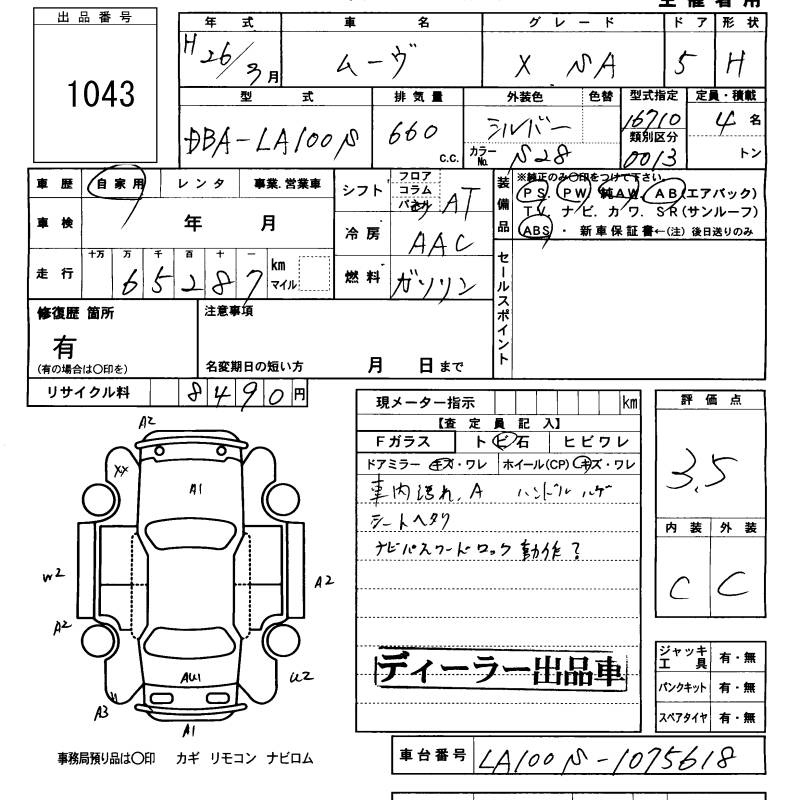 主催者用
出品番号
1043
年式 車名 グレード ドア 形状
H26/3月 ムーヴ X SA 5 H
型式 排気量 外装色 色替 型式指定 定員・積載
DBA-LA100S 660 c.c. シルバー 16710 4名
カラーNo. S28 類別区分 0013 トン
車歴 自家用 レンタ 事業.営業車
シフト フロア コラム パネル AT
車検 年 月
冷房 AAC
走行 十万 万 千 百 十 一 km マイル
65287
燃料 ガソリン
装備品 ※純正のみ〇印をつけて下さい。
PS. PW. 純AW. AB(エアバック)
TV. ナビ. カワ. SR(サンルーフ)
ABS ・ 新車保証書←(注)後日送りのみ
セールスポイント
修復歴 箇所 注意事項
有
(有の場合は〇印を) 名変期日の短い方 月 日まで
リサイクル料 8490円
現メーター指示 km
【査定員記入】
Fガラス トビ石 ヒビワレ
ドアミラー キズ・ワレ ホイール(CP) キズ・ワレ
車内汚れ.A ハンドルハゲ
シートヘタリ
ナビパスワードロック 動作?
ディーラー出品車
評価点
3.5
内装 外装
C C
ジャッキ工具 有・無
パンクキット 有・無
スペアタイヤ 有・無
A2
XX
A1
W2
A2
A2
AU1
U2
A3
A1
事務局預り品は〇印 カギ リモコン ナビロム
車台番号 LA100S-1075618